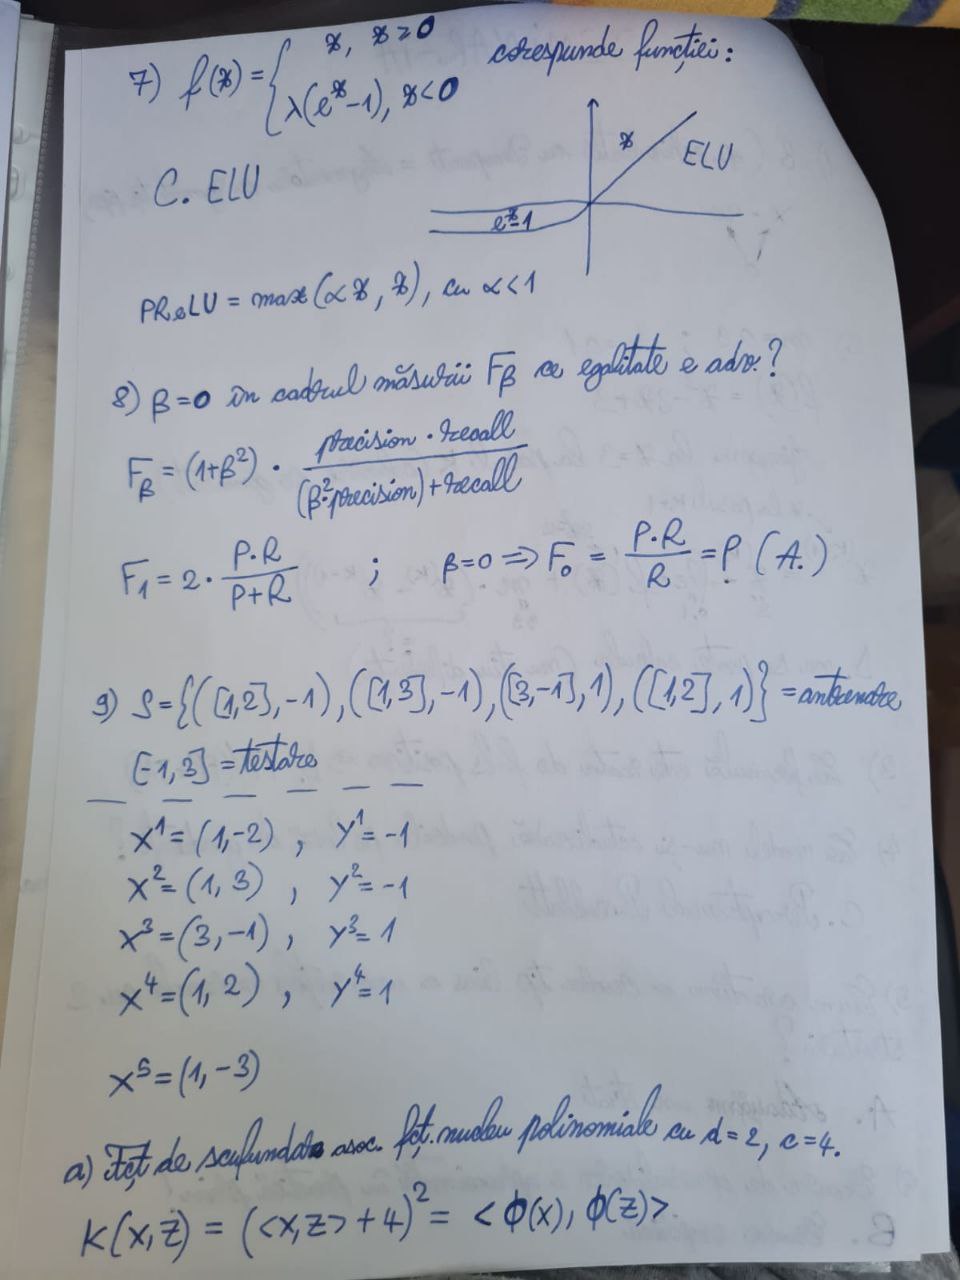 7) f(x) = { x, x ≥ 0 corespunde funcției:
λ(e^x - 1), x < 0
C. ELU
x
ELU
e^x-1
PReLU = max(αx, x), cu α<1
8) β=0 în cadrul măsurii Fβ ce egalitate e adv.?
Fβ = (1+β²) · precision · recall / (β²·precision) + recall
F1 = 2 · P·R / P+R ; β=0 => F0 = P·R / R = P (A.)
9) S = {([1,2], -1), ([1,3], -1), ([3,-1], 1), ([1,2], 1)} = antrenare
[-1,3] = testare
x¹ = (1,-2) , y¹ = -1
x² = (1, 3) , y² = -1
x³ = (3,-1) , y³ = 1
x⁴ = (1, 2) , y⁴ = 1
x⁵ = (1, -3)
a) Fct de scufundare asoc. fct. nucleu polinomiale cu d = 2, c = 4.
K(x, z) = (<x,z> + 4)² = <ϕ(x), ϕ(z)>